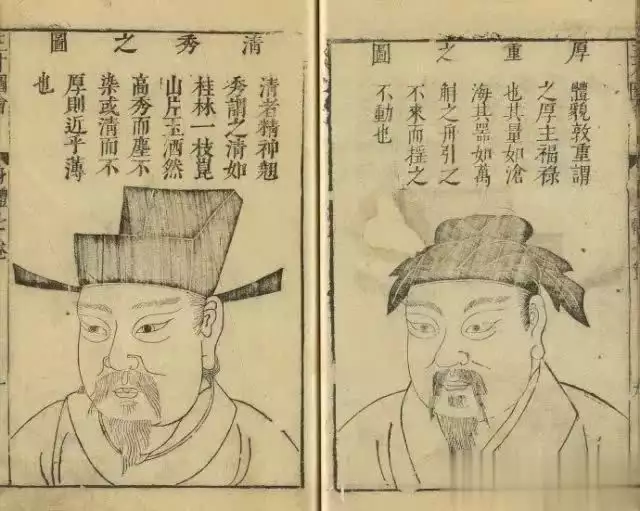 厚重之圖
體貌敦重謂
之厚主福祿
也其量如滄
海其器如萬
斛之舟引之
不來而搖之
不動也
清秀之圖
清者精神翹
秀謂之清如
桂林一枝崑
山片玉洒然
高秀而塵不
染或清而不
厚則近乎薄
也
三才圖會
身體七卷